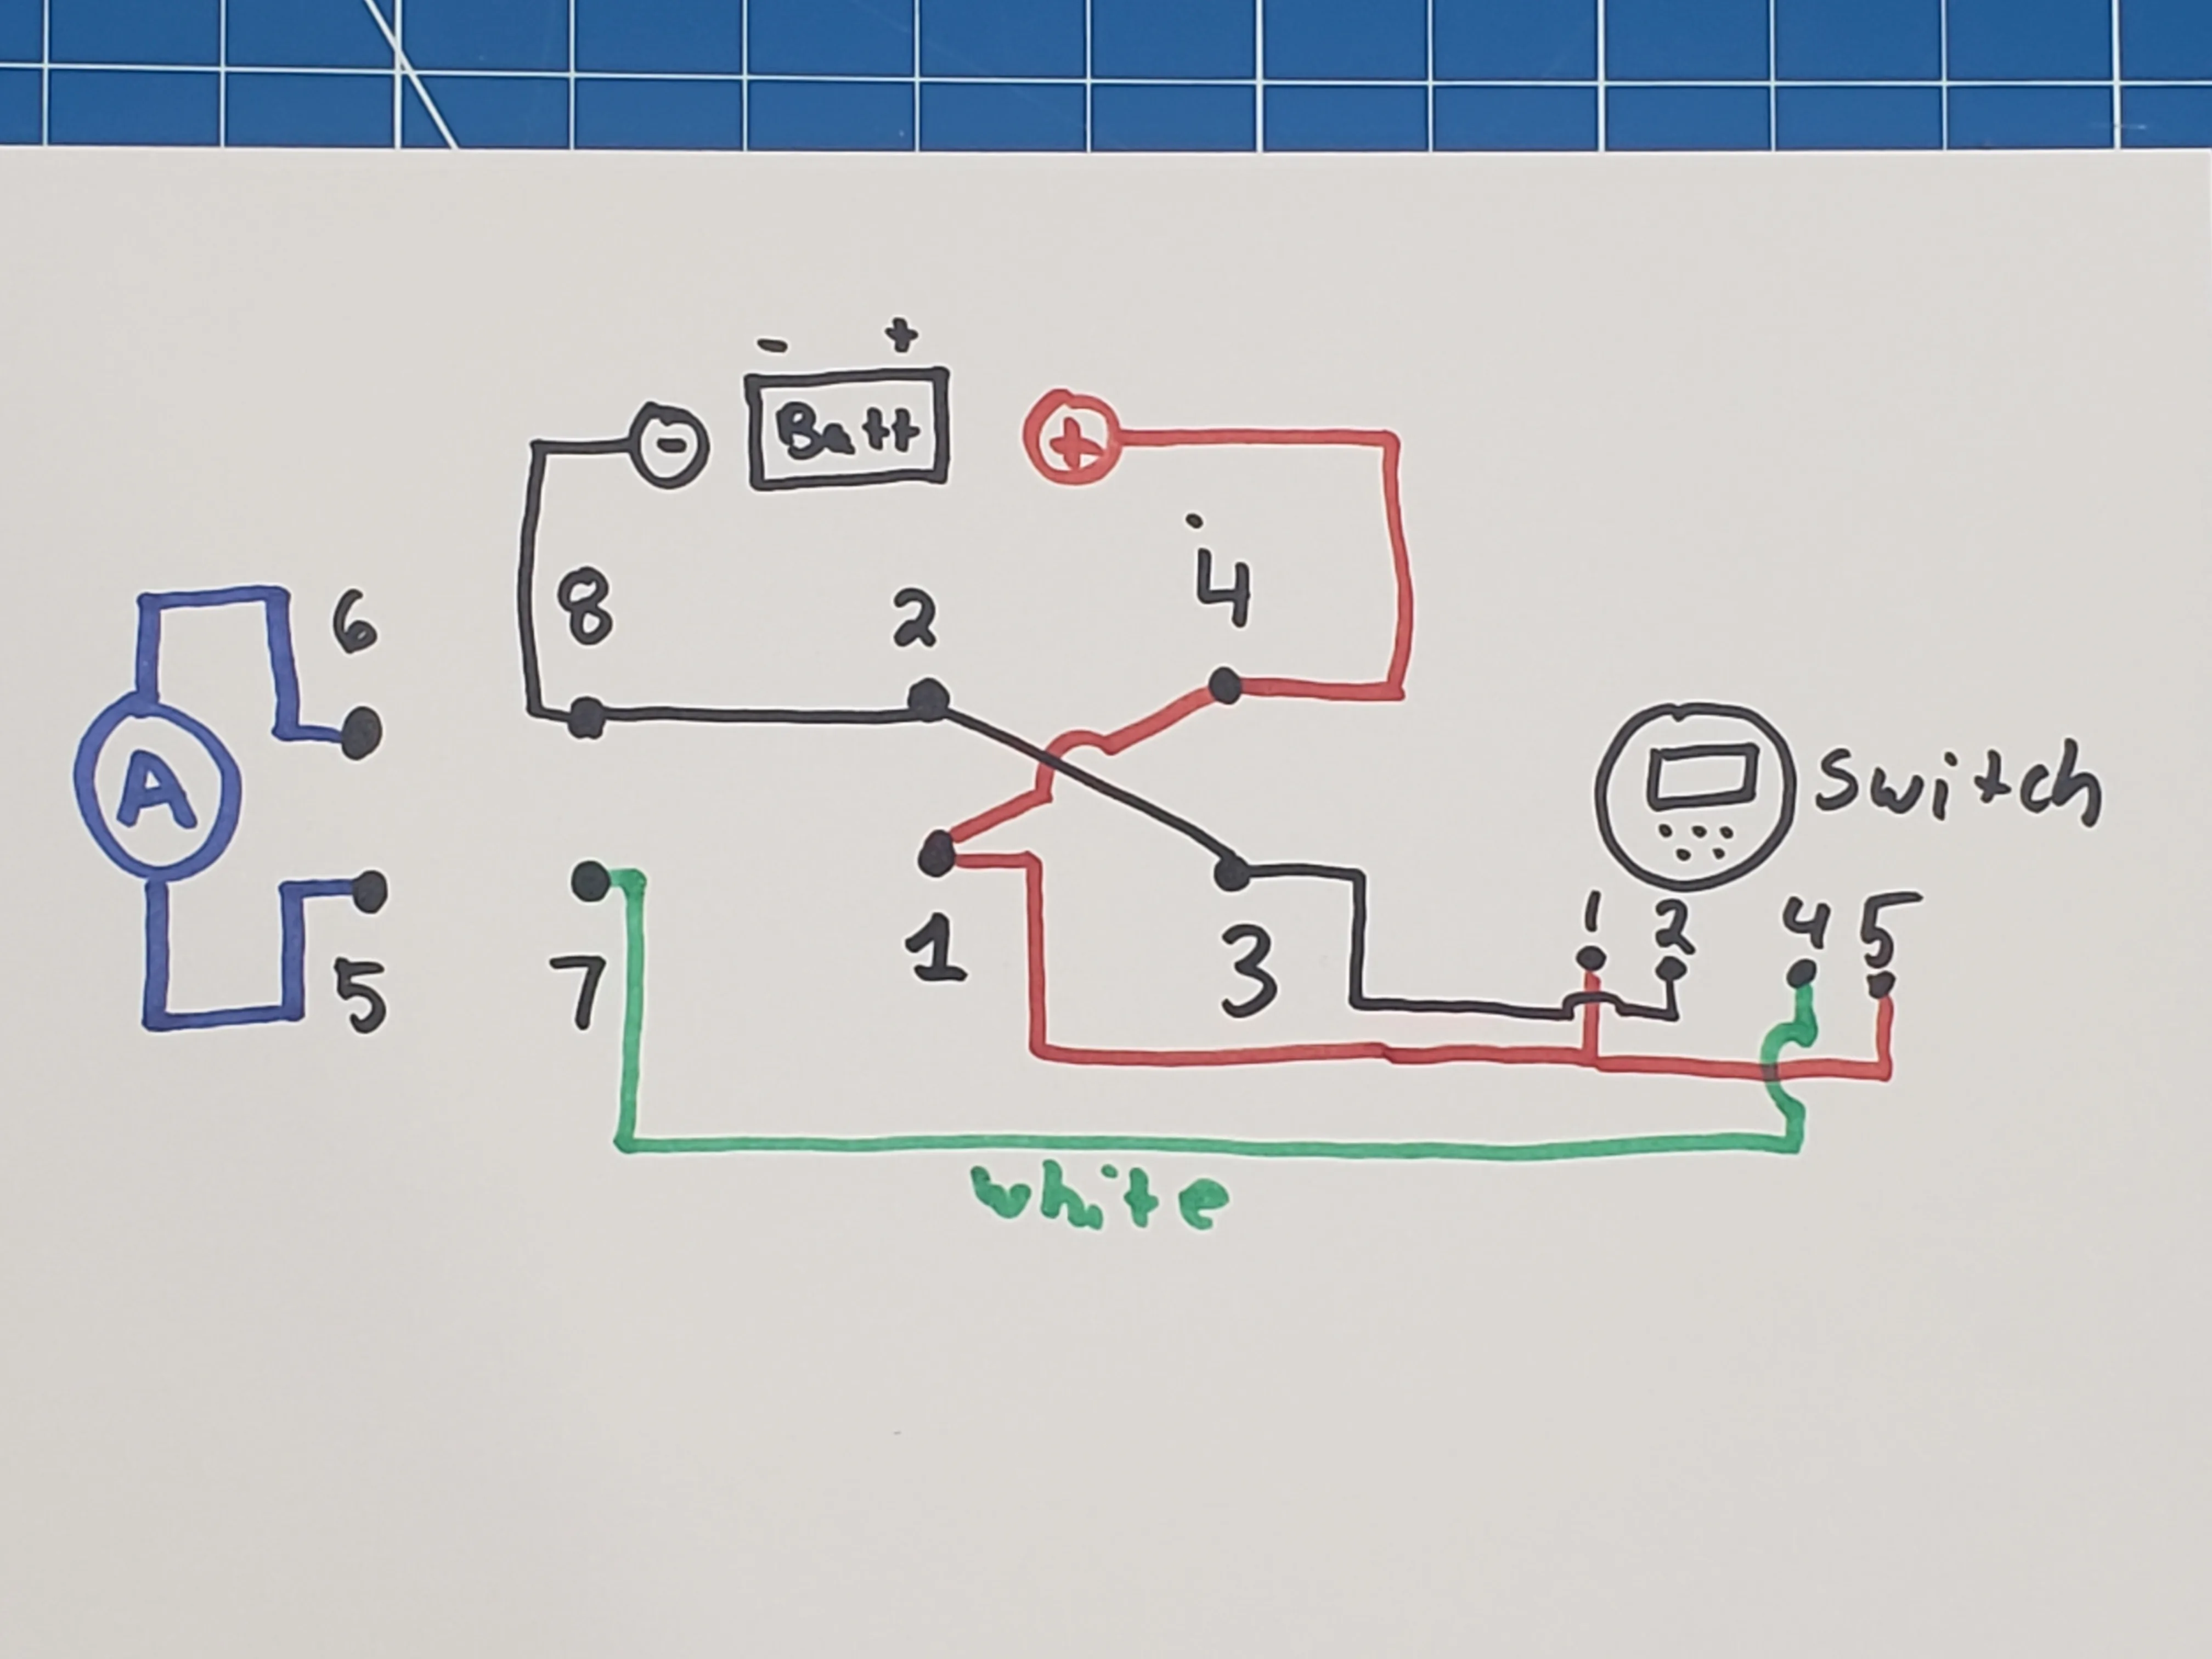 - +
- Batt +
6 8 2 4
A
Switch
1 2 4 5
5 7 1 3
white